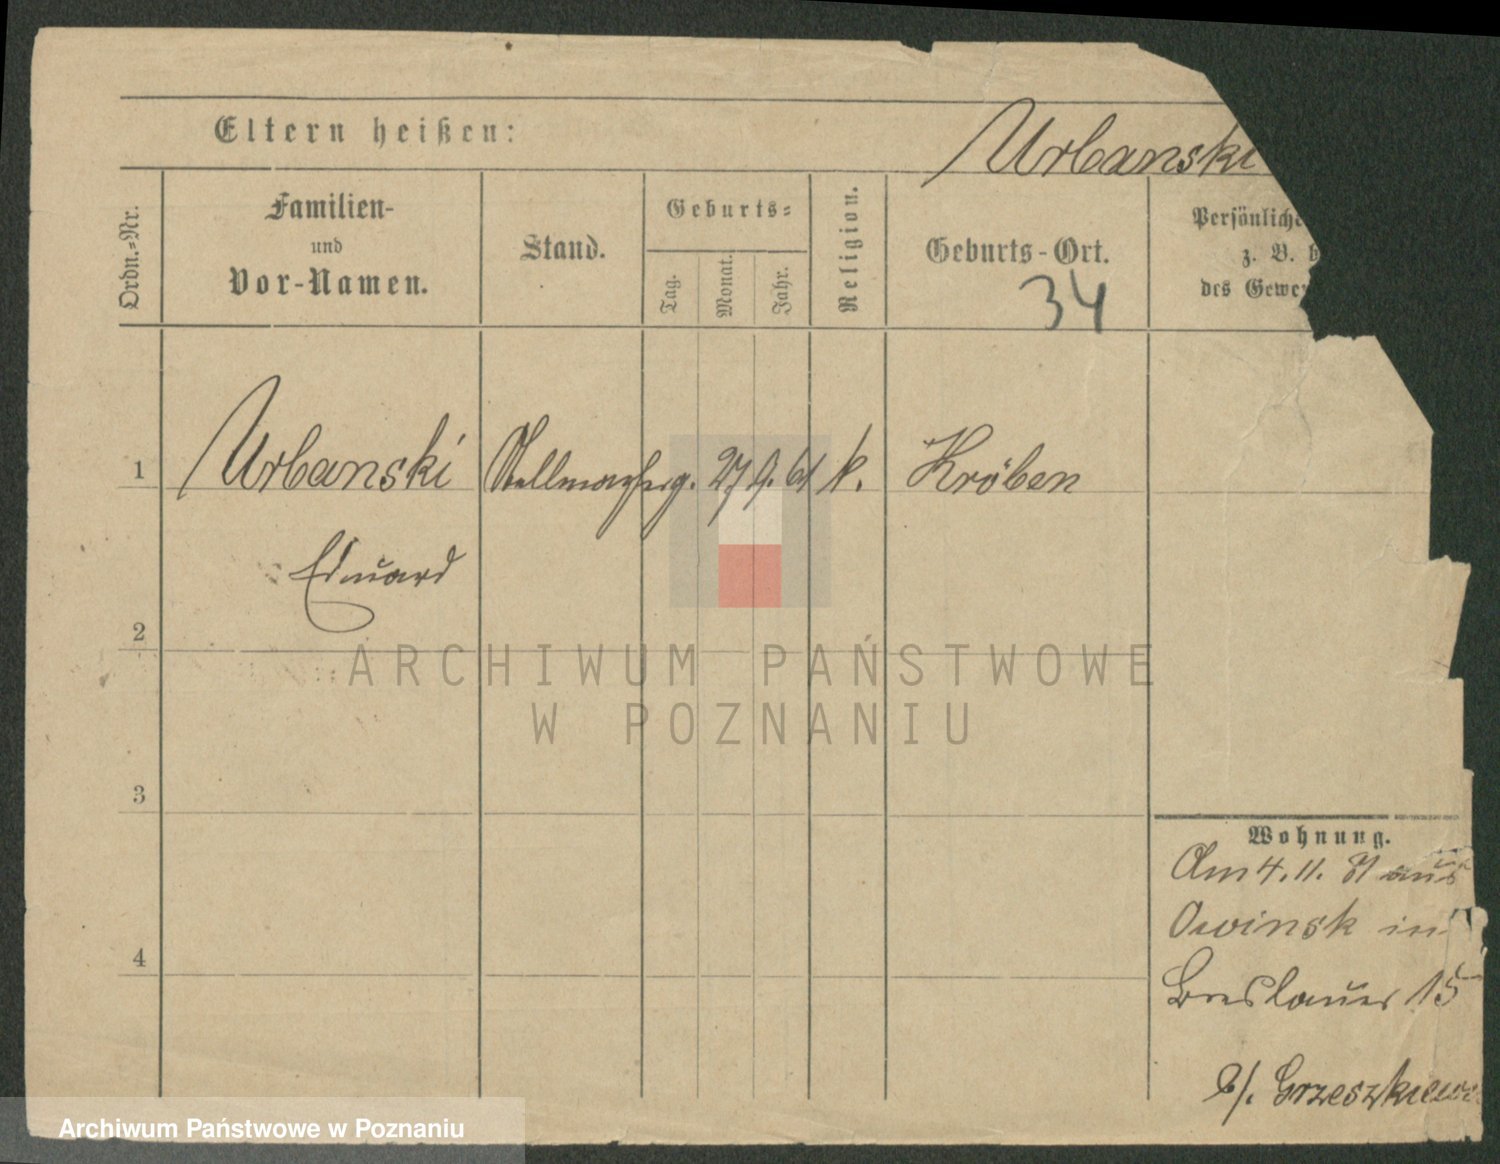 Eltern heißen:
Urbanski
Ordn.-Nr.
Familien-
und
Vor-Namen.
Stand.
Geburts-
Tag.
Monat.
Jahr.
Religion.
Geburts-Ort.
34
Persönliche
z. B. b
des Gewer
1 Urbanski k. Kröben
Eduard
2
3
4
Wohnung.
Am 4. 11. 81 aus
Owinsk in
Breslauer 15
b/. Grzeszkiewi
ARCHIWUM PAŃSTWOWE
W POZNANIU
Archiwum Państwowe w Poznaniu